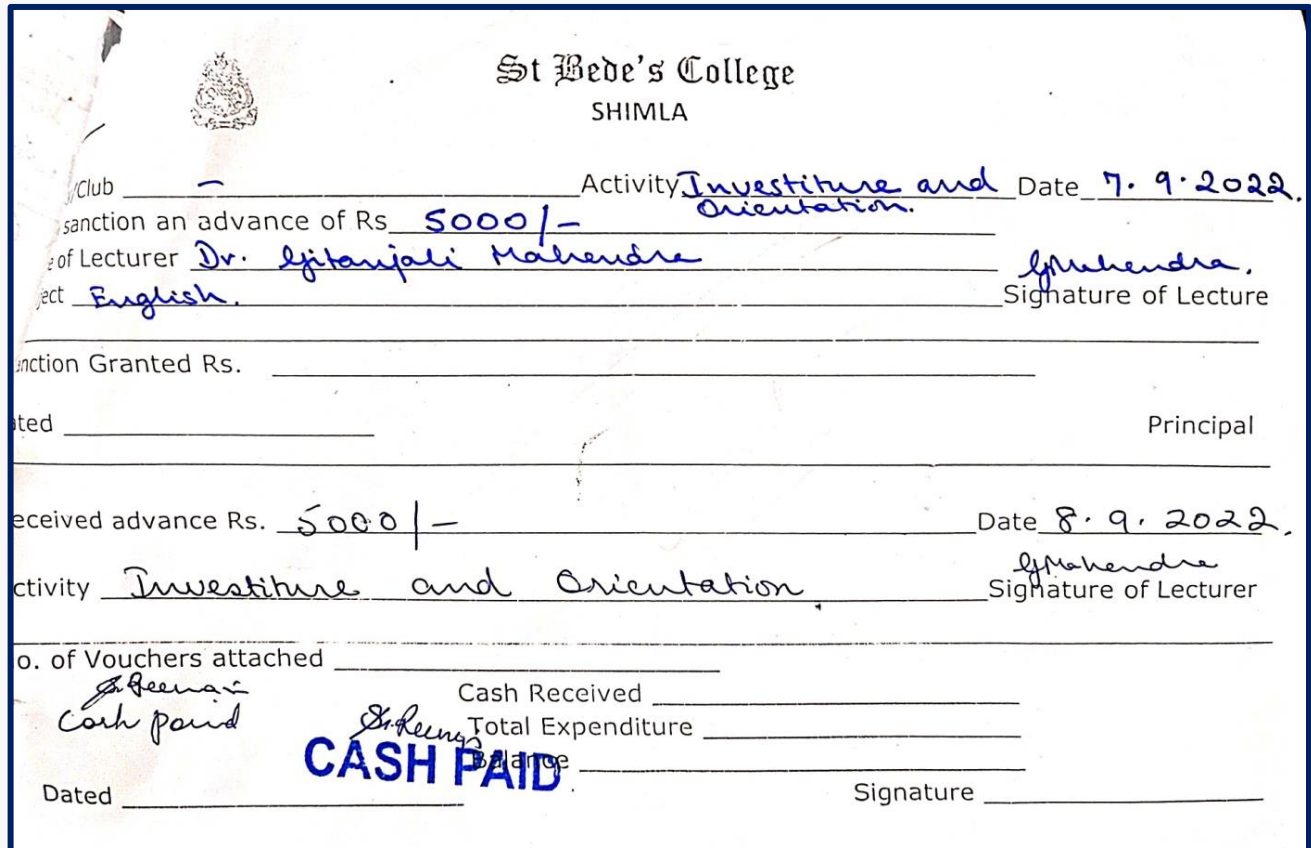 St Bede's College
SHIMLA
/Club – Activity Investiture and Orientation. Date 7.9.2022.
sanction an advance of Rs 5000/-
e of Lecturer Dr. Gitanjali Mahendra GMahendra.
ject English. Signature of Lecture
anction Granted Rs.
ated Principal
eceived advance Rs. 5000/- Date 8.9.2022.
GMahendra
ctivity Investiture and Orientation. Signature of Lecturer
o. of Vouchers attached
Cash Received
Cash paid Total Expenditure
CASH PAID Balance
Dated Signature